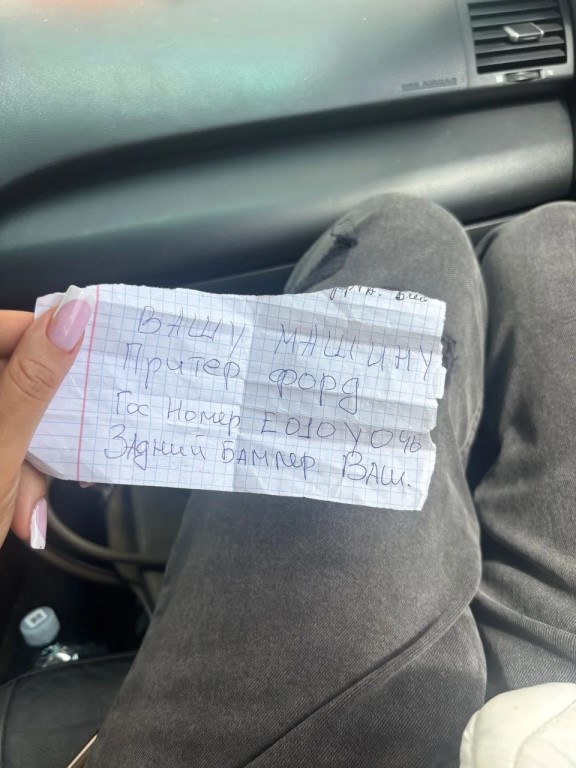 ВАШУ МАШИНУ
Притер форд
Гос Номер Е010УО
Задний Бампер ВАШ.